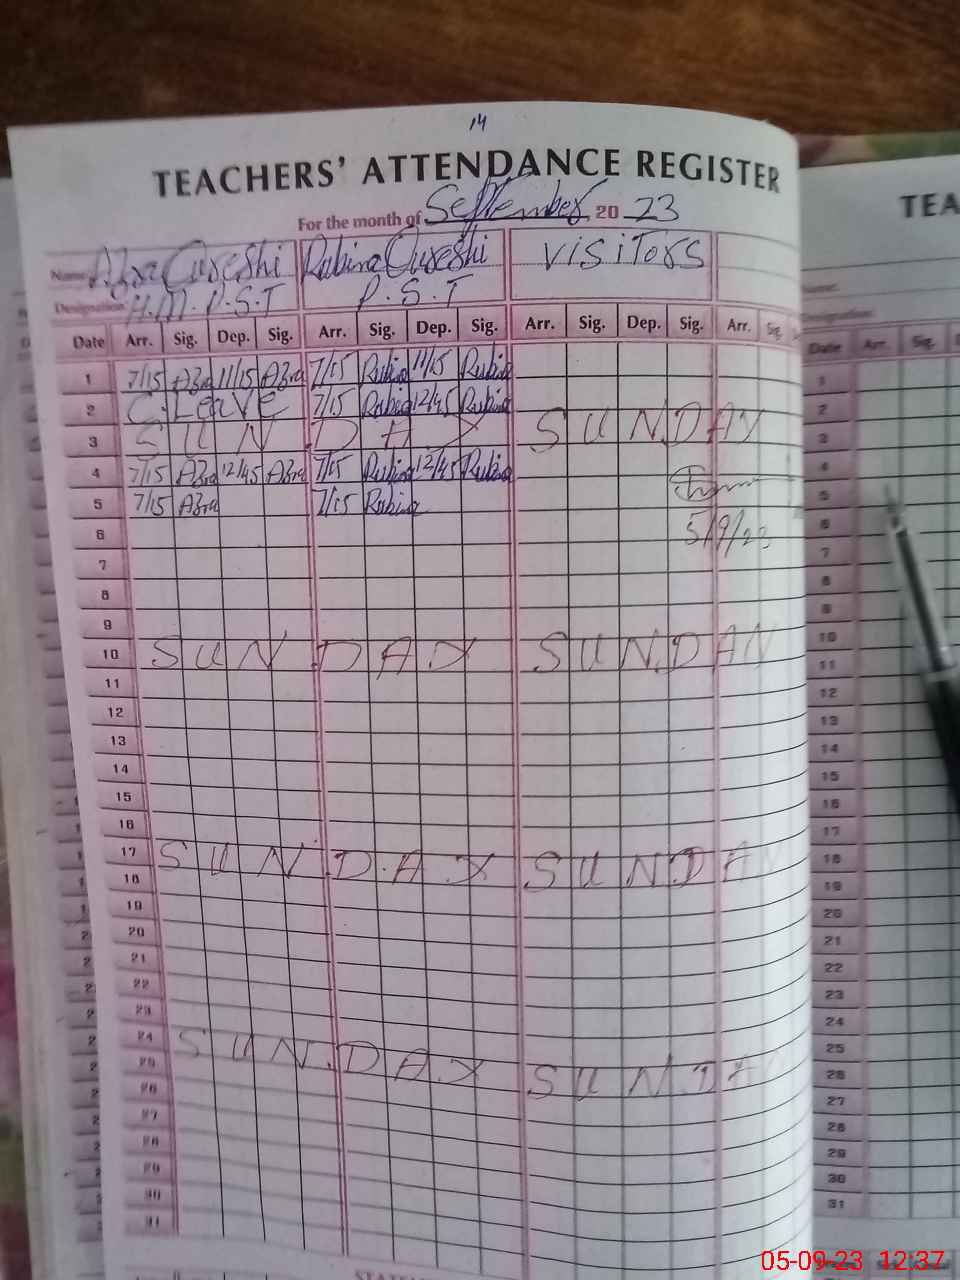 14
TEACHERS' ATTENDANCE REGISTER
TEA
For the month of September, 20 23
Name: Azra Qureshi Rubina Qureshi VISITORS
Designation: H.M. P.S.T P.S.T
Name:
Designation:
Date Arr. Sig. Dep. Sig. Arr. Sig. Dep. Sig. Arr. Sig. Dep. Sig. Arr. Sig.
Date Arr. Sig.
1 7/15 Azra 11/15 Azra 7/15 Rubina 11/15 Rubina
2 C. Leave 7/15 Rubina 12/45 Rubina
3 SUNDAY SUNDAY
4 7/15 Azra 12/45 Azra 7/15 Rubina 12/45 Rubina
5 7/15 Azra 7/15 Rubina
6 5/9/23
7
8
9
10 SUNDAY SUNDAY
11
12
13
14
15
16
17 SUNDAY SUNDAY
18
19
20
21
22
23
24 SUNDAY SUNDAY
25
26
27
28
29
30
31
1
2
3
4
5
6
7
8
9
10
11
12
13
14
15
16
17
18
19
20
21
22
23
24
25
26
27
28
29
30
31
05-09-23 12:37